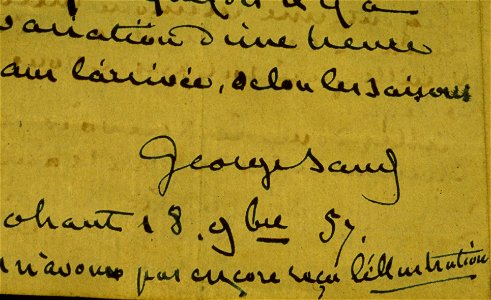 variation d'une heure
sur l'arrivée, selon les saisons
George Sand
ohant 18. 9bre 57.
n'avons pas encore reçu l'illustration